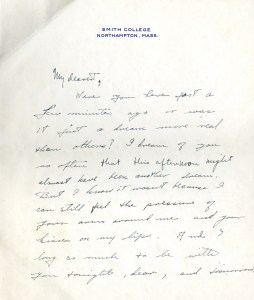 SMITH COLLEGE
NORTHAMPTON, MASS.
My dearest,
Were you here just a
few minutes ago or was
it just a dream more real
than others? I dream of you
so often that this afternoon might
almost have been another dream.
But I know it wasn't because I
can still feel the pressure of
your arms around me and your
kisses on my lips. And I
long so much to be with
you tonight, dear, and